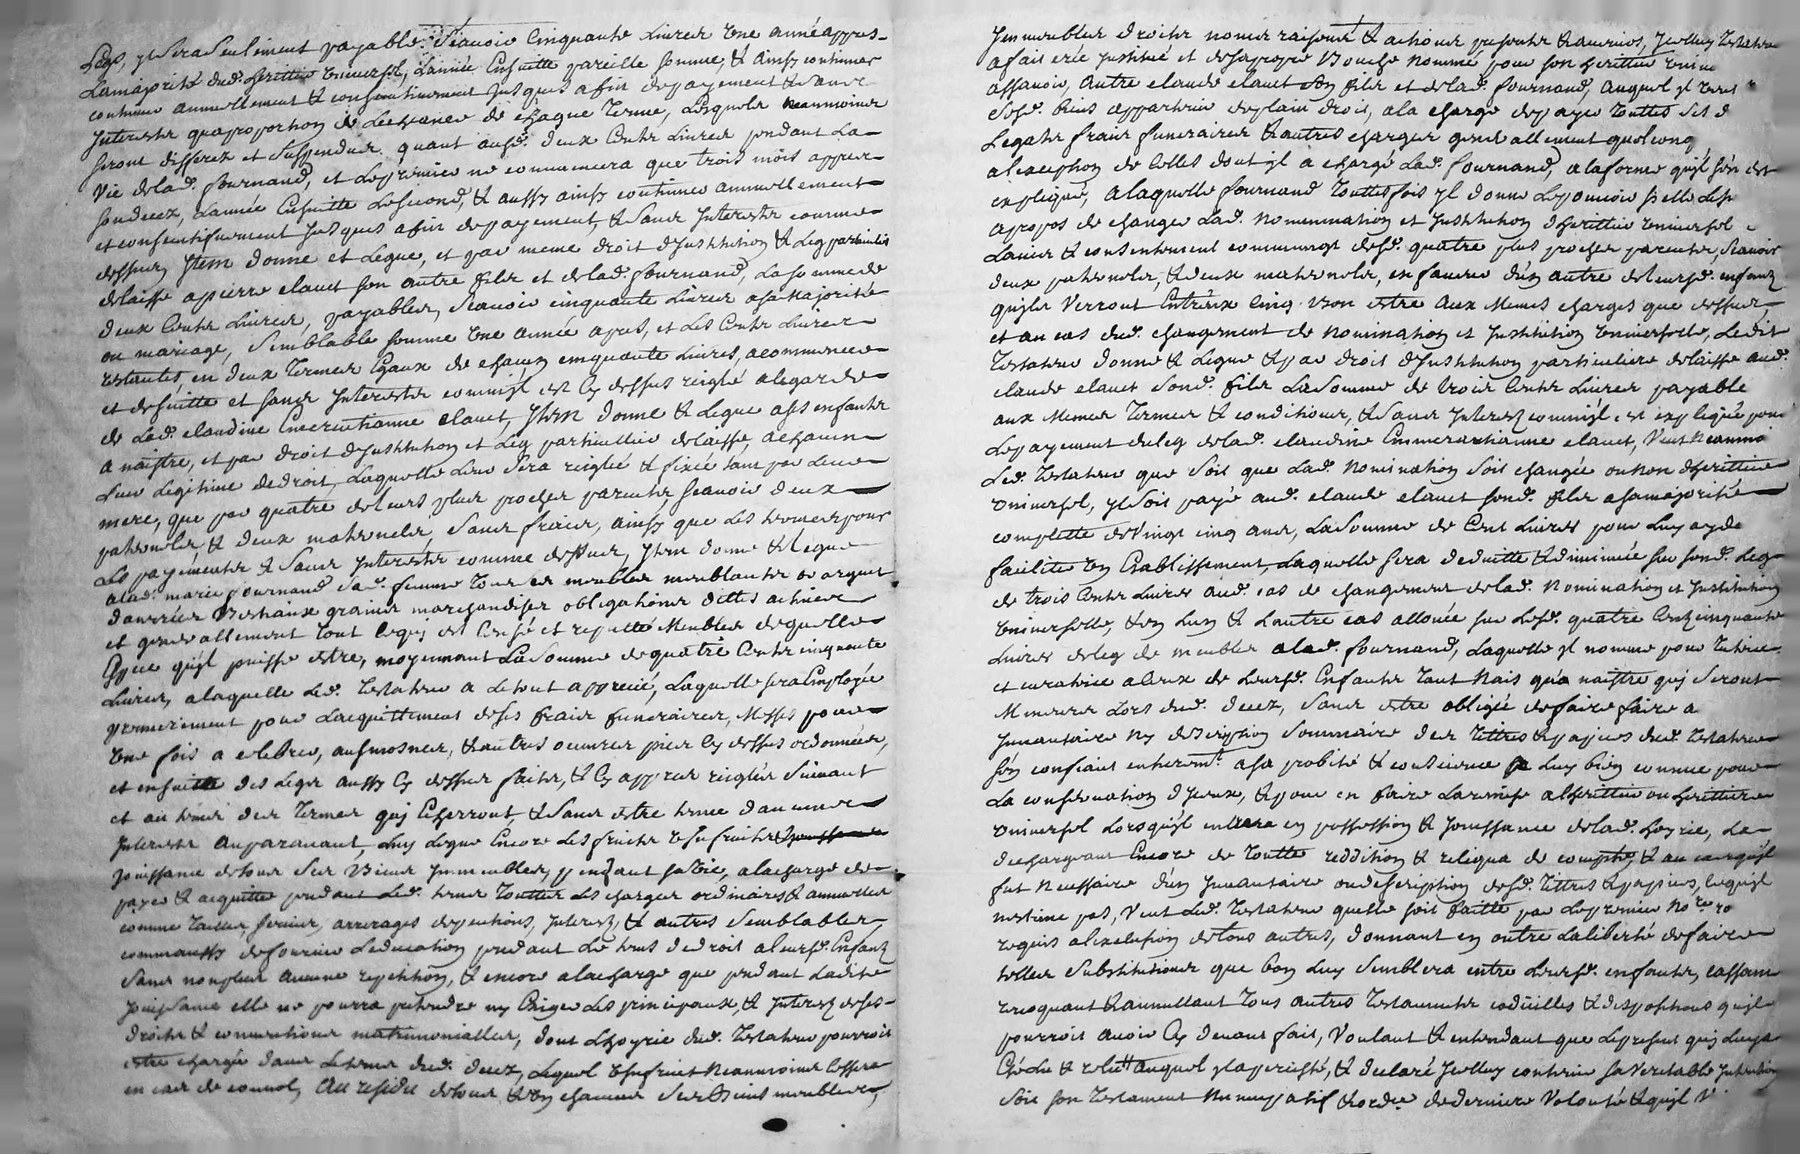 Legs, yl sera seulement payable, Scauoir Cinquante Liures Vne année appres
La majorité dud. heritier Vniuersel, L'année Ensuitte pareille somme, & Ainsy continuer
continuer annuellement & consecutiuement jusques a fin de payement & sans
Interestz qua proportion de Lecheance de chaque Terme, Lesquels neanmoins
seront differez et suspendus quant ausd. deux Cents Liures pendant La
Vie de lad. fournand, et Le premier ne commancera que trois mois appres
son decez, L'année Ensuitte Le second, & aussy ainsy continuer annuellement
et consecutifuement jusques a fin de payement, & sans Interestz comme
dessus, Item donne et Legue, et par meme droit d'Institution & Leg particulier
delaisse a pierre clauet son autre fils et de lad. fournand, La somme de
deux Cents Liures, payables, Scauoir cinquante Liures a sa Majorité
ou mariage, Semblable somme Vne année apres, et Les Cents Liures
restantes, en deux Termes Egaux de chacun cinquante Liures, a commencer
et de suitte et sans Interestz comme yl est Cy dessus reiglé a legard de
de Lad. claudine Emerentianne clauet, Item donne & Legue a ses enfants
a naistre, et par droit d'Institution et Leg particullier delaisse, a chacun
Leur Legitime de droit, Laquelle Leur Sera reiglée & fixée tant par Leur
mere, que par quatre de leurs plus proches parents, Scauoir deux
paternels, & deux maternels, Sans frais, ainsy que Les termes pour
Le payements & Sans Interestz comme dessus, Item donne & Legue
a lad. marie fournand Sad. femme Tous ses meubles meublants or argent
danrées Bestiaux graines marchandises obligations dettes actiues
et generallement tout ce qui est Censé et reputté Meubles de quelle
Espece qu'yl puisse estre, moyennant La Somme de quatre Cents cinquante
Liures, a laquelle Led. Testateur a Le tout apprecié, Laquelle sera Employée
premierement pour L'acquittement de ses frais funeraires, Messes pour
Vne fois a celebrer, ausmosnes, & autres oeuures pies Cy dessus ordonnées,
et ensuitte des Legs aussy Cy dessus faits, & Cy appres reiglés Suiuant
et au temps des Termes qui Echerront, & Sans estre tenue d'aucuns
Interestz Auparauant, Luy Legue Encore Les fruits Vsufruits
jouissance de tous Ses Biens Immeubles, pendant Sa Vie, a la charge de
payer & acquitter pendant Led. temps Touttes Les charges ordinaires & annuelles
comme Tailles, fermier, arrerages de pentions, Interestz, & autres Semblables
comm'aussy de fournir L'education pendant Le tems de droit a leursd. Enfants
Sans non plus aucune repetition, & encore a la charge que pendant Ladite
jouissance elle ne pourra pretendre ny Exiger Les principaux, & Interestz de ses
droits & conuentions matrimonialles, dont L'hoyrie dud. Testateur pourroit
estre chargée dans Le tems dud. decez, Lequel Vsufruit Neanmoins Cessera
en cas de conuol, Au residu de tous & Vn chacuns Ses Biens meubles,
Immeubles droits noms raisons & actions presents & aduenirs, Icelluy Testateur
a fait créé Institué et de sa propre Bouche Nommé pour son heritier Vniue
assauoir, Autre claude clauet Son fils et de lad. fournand, Auquel yl Veut
Sesd. biens appartenir de plain droit, a la charge de payer Touttes Ses d
Legats fraix funeraires & autres charges generallement quelconq
a l'exception de Celles dont yl a chargé Lad. fournand, a la forme qu'yl s'en est
expliqué, A laquelle fournand Touttesfois yl donne Le pouuoir si elle Le se
a propos de changer Lad. Nommination et Institution d'heritier Vniuersel
L'auis & consentement commungs desd. quatre plus proches parents, Scauoir
deux paternels, & deux maternels, en faueur d'un autre de leursd. enfants
qu'yls Verront Entr'eux Cinq bon estre aux Memes charges que dessus
et au cas dud. changement de Nomination et Institution Vniuerselle, Ledit
Testateur donne & Legue & par droit d'Institution particuliere delaisse aud.
claude clauet Sond. fils La Somme de trois Cents Liures payable
aux Memes Termes & conditions, & Sans Interestz comm'yl est expliqué pour
Le payement du leg de lad. claudine Emmerantianne clauet, Veut Neanmoi
Led. Testateur que Soit que Lad. Nomination Soit changée ou Non d'heritier
Vniuersel, yl Soit payé aud. claude clauet sond. fils a sa majorité
complette de Vingt cinq ans, La Somme de Cent Liures pour Luy ayde
faciliter Vn Etablissement, Laquelle sera deduitte & diminuée sur sond. Leg
de trois Cents Liures aud. cas de changement de lad. Nomination et Institution
Vniuerselle, & en L'un & L'autre cas allouée sur Lesd. quatre Cents cinquante
Liures de leg de meubles a lad. fournand, Laquelle yl nomme pour Tutrice
et curatrice a Ceux de Leursd. Enfants Tant Nais qu'a naistre qui Seront
Mineurs Lors dud. decez, Sans estre obligée de faire faire a
Inuantaire ny description Sommaire des Tittres & papiers dud. Testateur
s'en confiant entierem.t a sa probité & conscience a Luy bien connue pour
La conseruation d'Iceux, & pour en faire La remise a l'heritier ou heritiere
Vniuersel Lorsqu'yl entrera en possession & Jouissance de lad. hoyrie, La
dechargeant Encore de Toutte reddition & reliqua de compte, & au cas qu'yl
fut Necessaire d'un Inuantaire ou description desd. Tittres & papiers, ce qu'yl
n'estime pas, Veut Led. Testateur quelle soit faitte par Le premier No.re ro
requis a l'exclusion de tous autres, donnant en outre La liberté de faire
telles Substitutions que bon Luy Semblera entre Leursd. enfants, cassant
reuoquant & annullant Tous autres Testaments codicilles & dispositions qu'yl
pourroit auoir Cy deuant fait, Voulant & entendant que Le present qui Luy a
Eté Lu & relu auquel yl a persisté, & declaré Icelluy contenir sa Veritable Intention
Soit son Testament Nuncupatif & ordre de derniere Volonté & qu'yl V